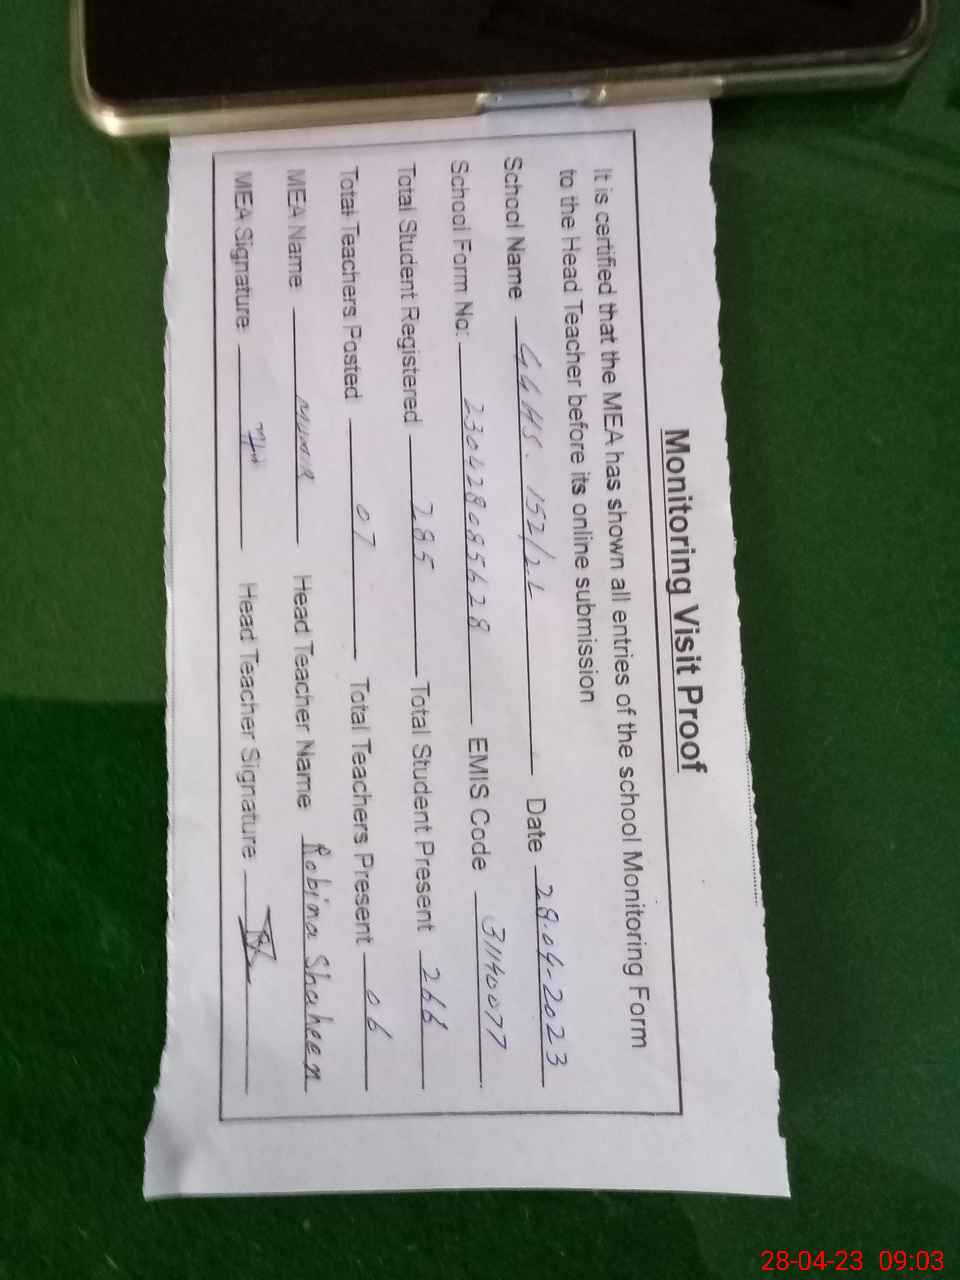 Monitoring Visit Proof
It is certified that the MEA has shown all entries of the school Monitoring Form
to the Head Teacher before its online submission
School Name GGHS. 152/2L Date 28-04-2023
School Form No: 230428085628 EMIS Code 31140077
Total Student Registered 285 Total Student Present 266
Total Teachers Posted 07 Total Teachers Present 06
MEA Name: MUNIR Head Teacher Name Robina Shaheen
MEA Signature: Head Teacher Signature
28-04-23 09:03